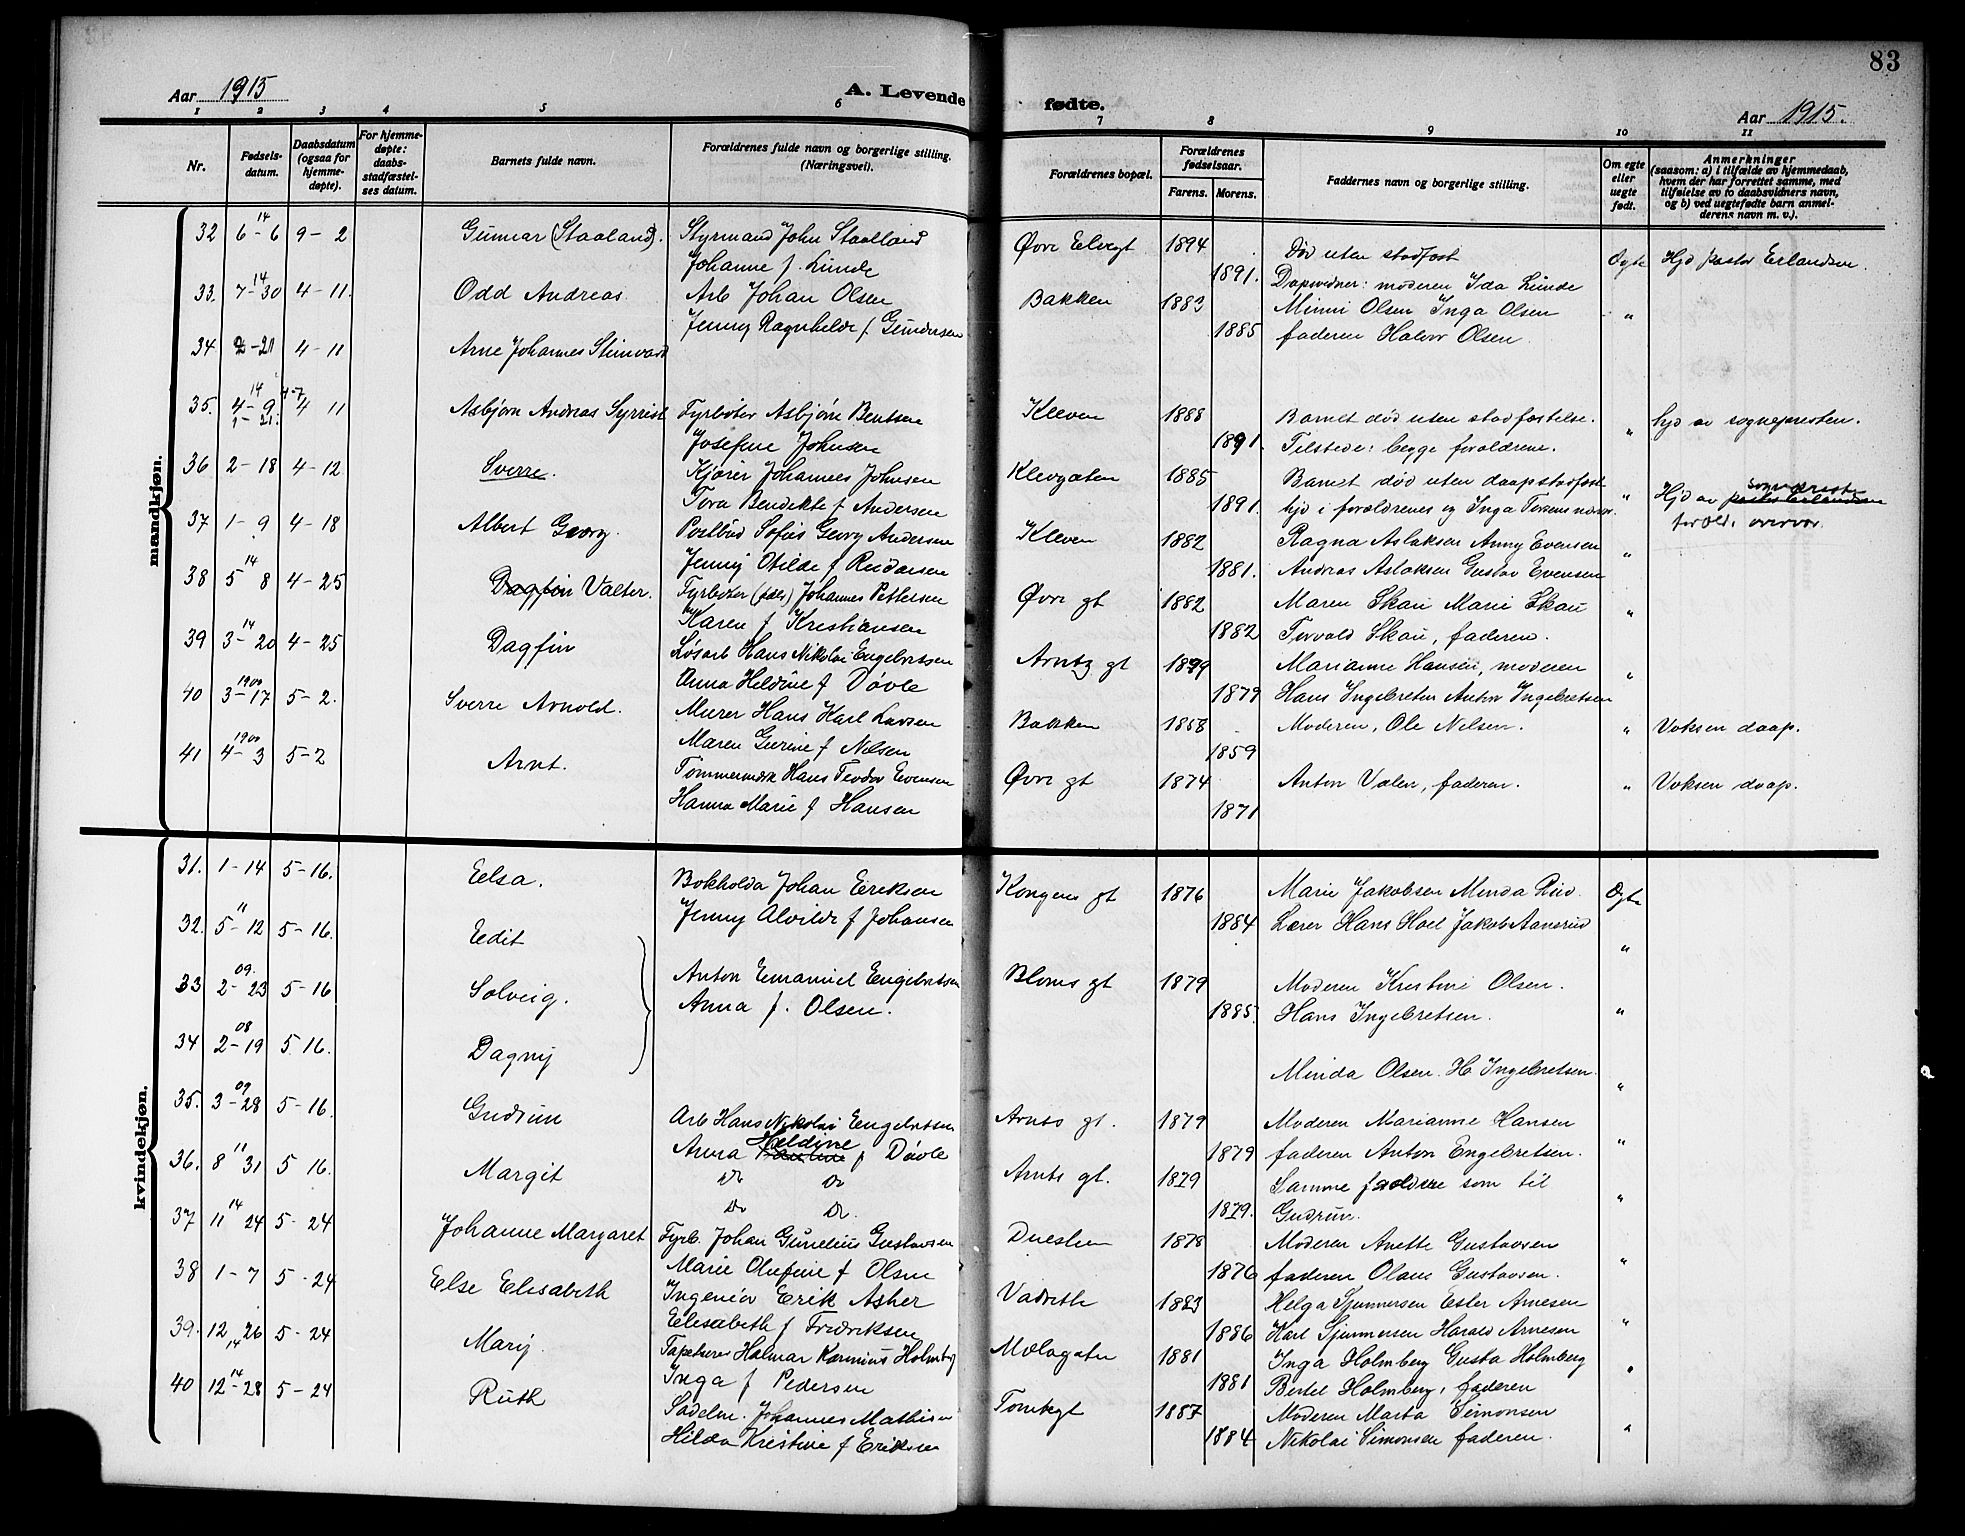 83
Aar 1915
A. Levende fødte.
Aar 1915.
1 2 3 4 5 6 7 8 9 10 11
Nr.
Fødsels-
datum.
Daabsdatum
(ogsaa for
hjemme-
døpte).
For hjemme-
døpte:
daabs-
stadfæstel-
ses datum.
Barnets fulde navn.
Forældrenes fulde navn og borgerlige stilling.
(Næringsvei).
Forældrenes bopæl.
Forældrenes
fødselsaar.
Farens. Morens.
Faddernes navn og borgerlige stilling.
Om egte
eller
uegte
født.
Anmerkninger
(saasom: a) i tilfælde av hjemmedaab,
hvem der har forrettet samme, med
tilføielse av to daabsvidners navn,
og b) ved uegtefødte barn anmel-
derens navn m. v.).
mandkjøn.
32 14 6-6 9-2 Gunnar (Staaland). Styrmand John Staalland Øvre Elvegt 1894 Død uten stadfæst Egte Hjd pastor Erlandsen.
Johanne f. Lunde 1891. Daapsvidner: moderen Ida Lunde
33. 14 7-30 4-11. Odd Andreas Arb Johan Olsen Bakken 1883 Minni Olsen Inga Olsen "
Jenny Ragnhilde f Gundersen 1885 faderen Halvor Olsen.
34 2-21 4-11 Arne Johannes
35. 14 4-9 4-7 4 11 Asbjørn Andreas Fyrbøter Asbjørn Bentsen Kleven 1888 Barnet død uten stadfæstelse. " hjd av sognepresten.
1-21. Josefine Johnsen 1891. Tilstede: begge forældrene.
36 2-18 4-12 Sverre. Kjører Johannes Johnsen Klevgaten 1885 Barnet død uten daapstadfæst " Hjd av sogneprest
Tora Bendikte f Andersen 1891. hjd i forældrenes og Inga foræld. overvær.
37 1-9 4-18 Albert Georg. Postbud Sofus Georg Andersen Kleven 1882 Ragna Aslaksen Anny Evensen "
Jenny Otilde f Reidarsen 1881. Andreas Aslaksen Gustav Evensen
38 14 5 8 4-25 Dagfin Valter. Fyrbøter Johannes Pettersen Øvre gt 1882 Maren Skau Marie Skau "
Karen f Kristiansen 1882 Torvald Skau, faderen.
39 14 3-20 4-25 Dagfin Løsarb Hans Nikolai Engebretsen Arntz gt 1879 Marianne Hansen, moderen "
Anna Heldine f Døvle 1879 Hans Ingebretsen Anton Ingebretsen
40 1900 3-17 5-2. Sverre Arnold. Murer Hans Karl Larsen Bakken 1858 Moderen, Ole Nilsen. " Voksen daap.
Maren Gurine f Nilsen 1859
41 1900 4-3 5-2 Arnt. Tømmermdk Hans Teodor Evensen Øvre gt 1874 Anton Valen, faderen. " Voksen daap.
Hanna Marie f Hansen 1871
kvindekjøn.
31. 1-14 5-16. Elsa. Bokholda Johan Eriksen Kongens gt 1876 Marie Jakobsen Minda Ruud Egte
Jenny Alvilde f Johansen 1884 Lærer Hans Hoel Jakob Aamsrud
32. 11 5-12 5-16. Edit "
33 09. 2-23 5-16 Solveig. Anton Emanuel Engebretsen Bloms gt 1879 Moderen Kristine Olsen.
Anna f. Olsen. 1885. Hans Ingebretsen. "
34 08 2-19 5.16. Dagny
Minda Olsen. H Ingebretsen. "
35. 09 3-28 5-16. Gudrun Arb Hans Nikolai Engebretsen Arnts gt. 1879 Moderen Marianne Hansen "
Anna Heldine f Døvle 1879 faderen Anton Engebretsen.
36. 11 8 31 5 16. Margit Do Do Arnts gt. 1879 Samme faddere som til "
Do Do. 1879. Gudrun.
37 14 11 24 5-24 Johanne Margaret Fyrb. Johan Gunelius Gustavsen Duestien 1878 Moderen Anette Gustavsen "
Marie Olufine f Olsen 1876 faderen Olaus Gustavsen.
38 1-7 5-24 Else Elisabeth Ingeniør Erik Asher 1883 Helga Sjunnersen Ester Arnesen "
Elisabeth f Fredriksen 1886 Karl Sjunnersen Harald Arnesen
39. 12 26 14 5-24 Mary. Tapetserer Halmar Holmberg Mølogaten 1881 Inga Holmberg Gusta Holmberg "
Inga f Pedersen 1881 Bertel Holmberg, faderen
40 14 12-28 5-24 Ruth Sadelm. Johannes Mathisen 1887 Moderen Marta Simonsen "
Hilda Kristine f Eriksen 1884 Nikolai Simonsen faderen.